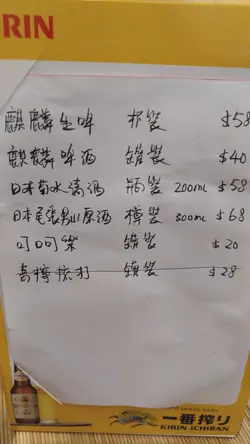 RIN
麒麟生啤 杯裝 $58
麒麟啤酒 罐裝 $40
日本菊水清酒 瓶裝 200ml $58
日本尾張男山原酒 樽裝 300ml $68
可口可樂 罐裝 $20
青檸梳打 罐裝 $28
一番搾り
KIRIN ICHIBAN